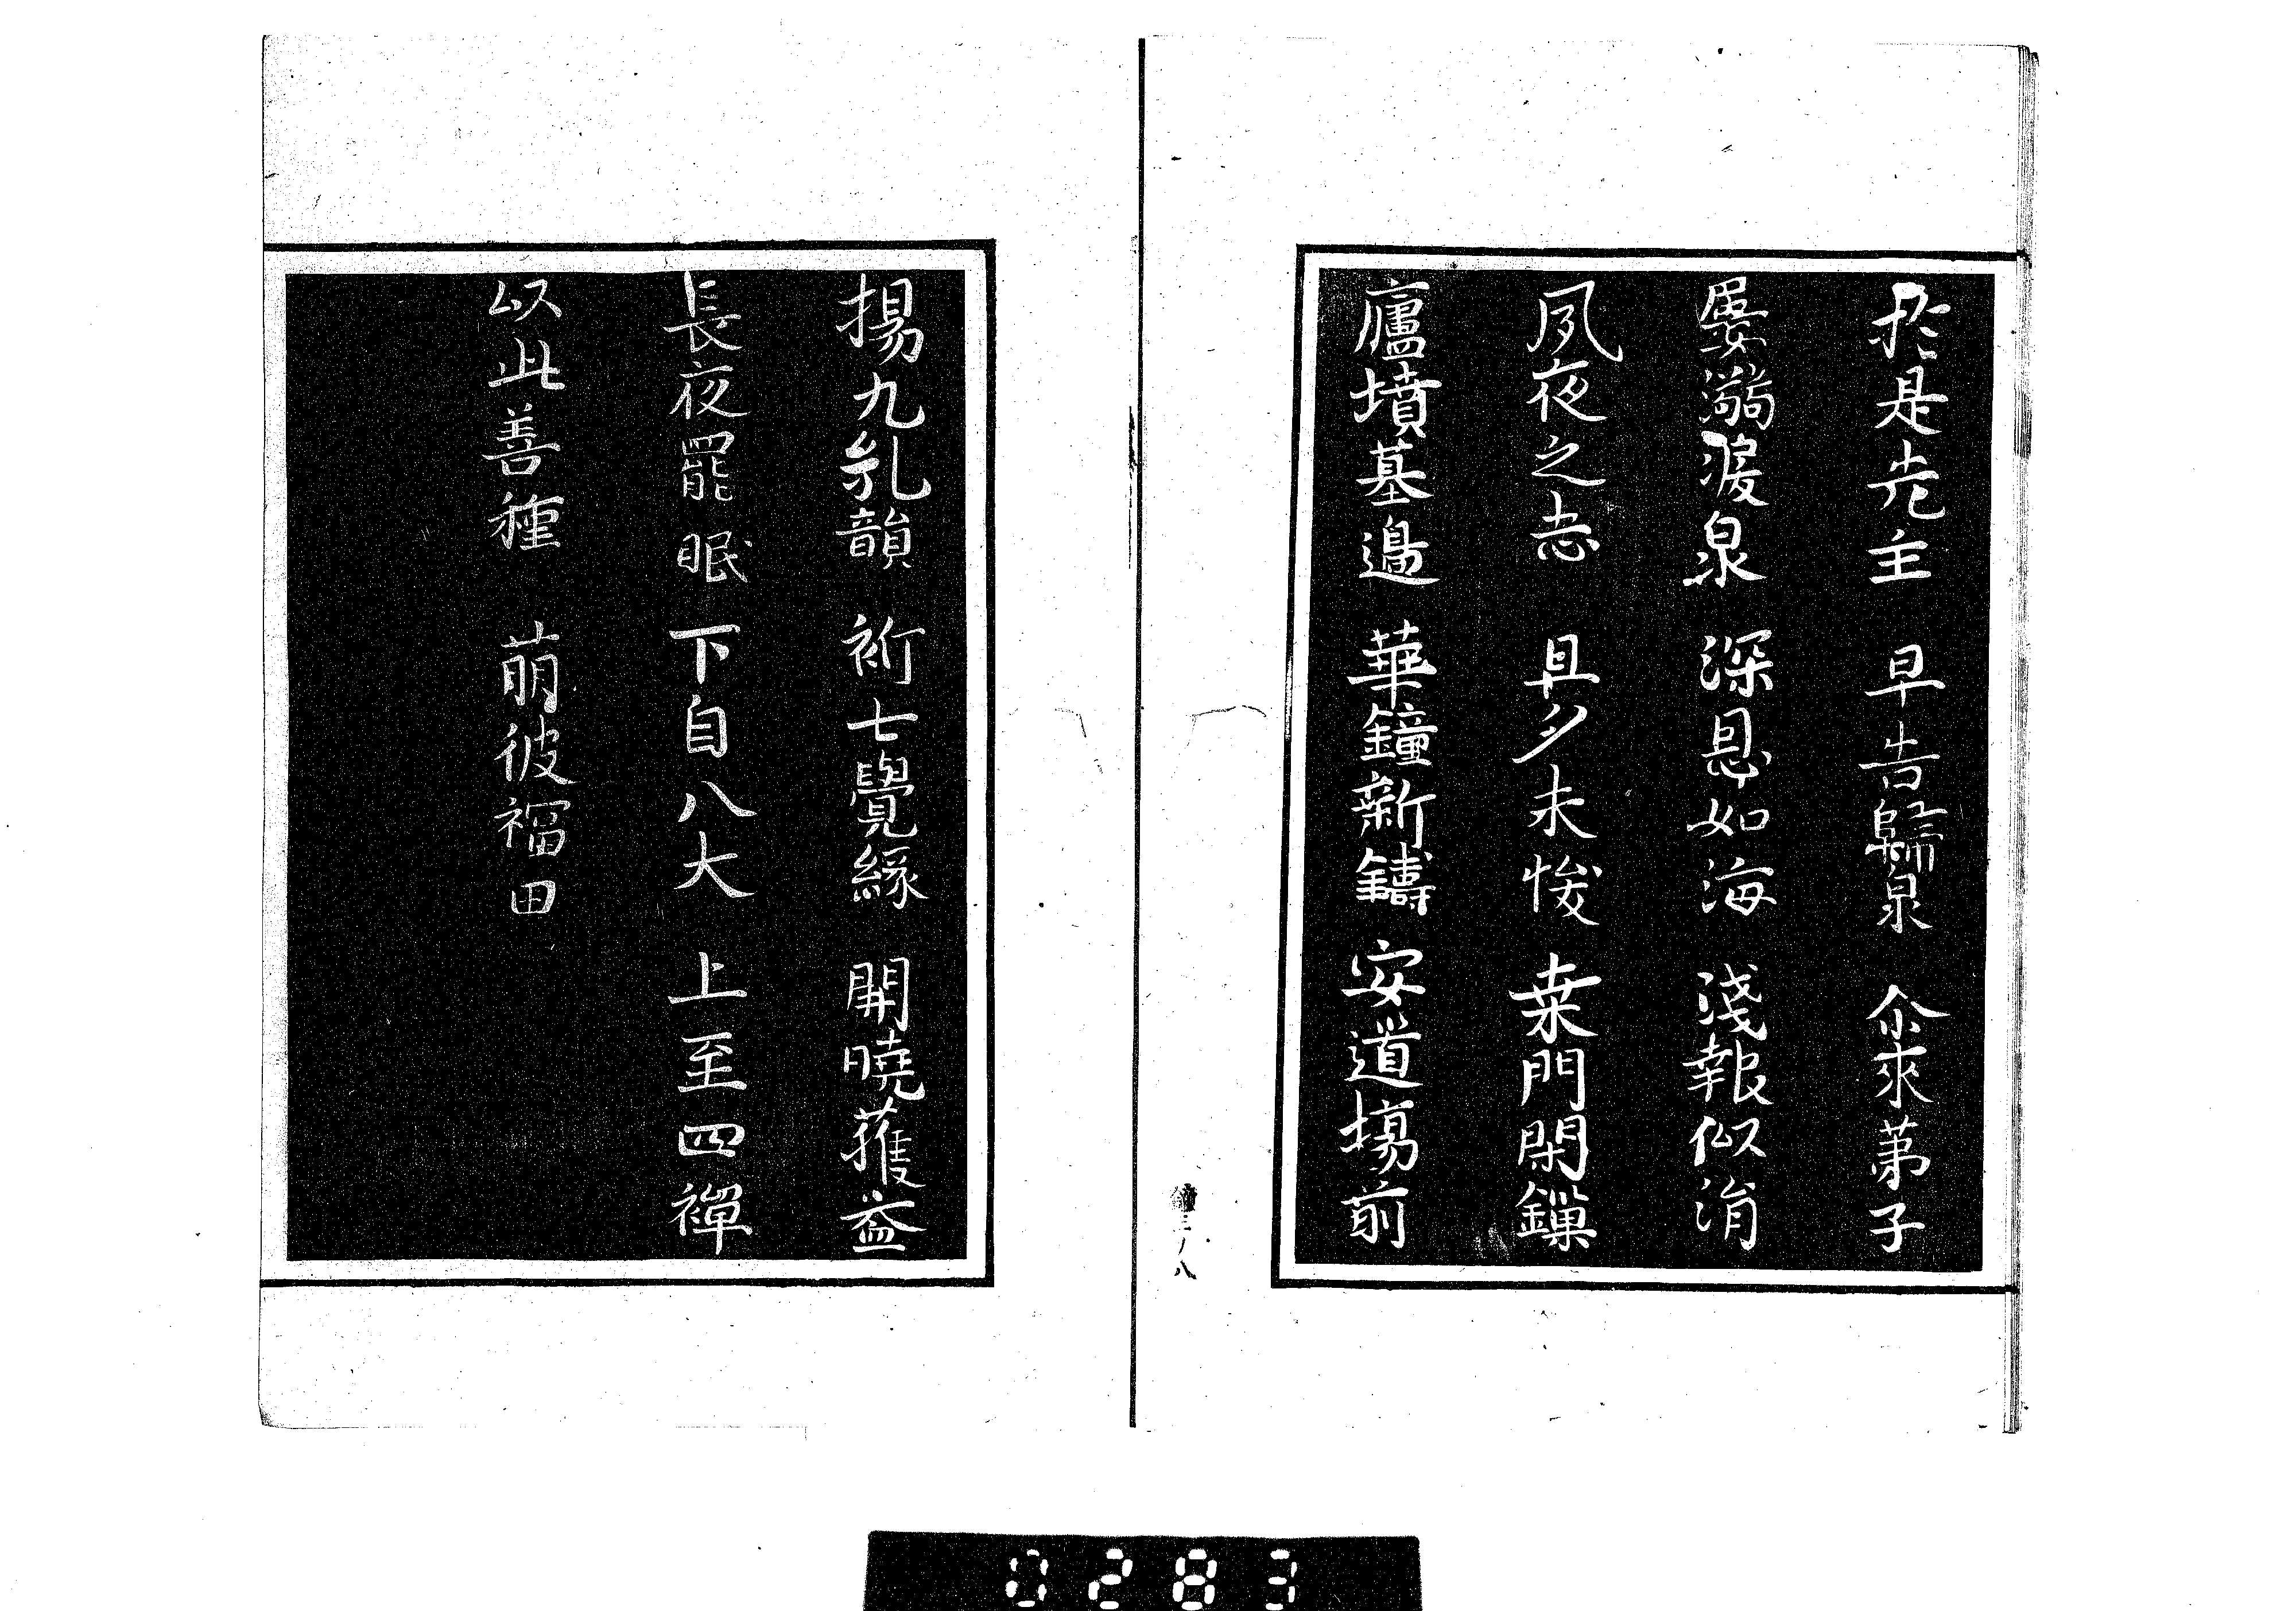 於是先主 早告歸泉 尒來弟子
屢溺淚泉 深恩如海 淺報似涓
夙夜之志 且夕未悛 桒門閑鏁
廬墳墓邊 華鐘新鑄 安道場前
揚九乳韻 衍七覺緣 開曉獲益
長夜罷眠 下自八大 上至四禪
以此善種 萌彼福田
鐘三ノ八
0283